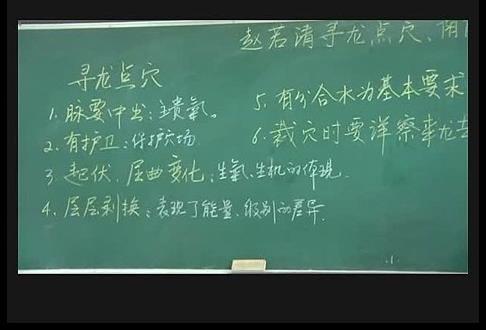 赵若清寻龙点穴、阴
寻龙点穴
1. 脉要中出：主贵氣。
2. 有护卫：保护穴场
3. 起伏、屈曲变化：生氣、生机的体现.
4. 层层剥换：表现了能量、级别的差异.
5. 有分合水为基本要求
6. 裁穴时要详察来龙去